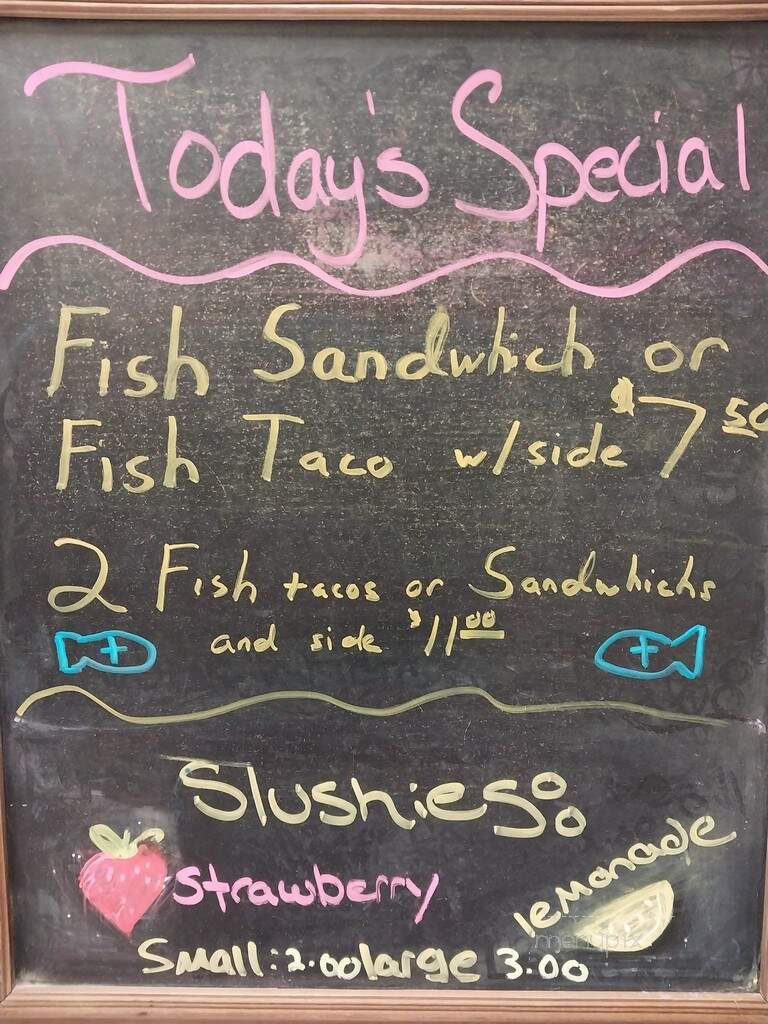 Today's Special
Fish Sandwhich or
Fish Taco w/side $7 50
2 Fish tacos or Sandwhichs
and side $11 00
Slushies:
Strawberry
lemonade
Small: 2.00 large 3.00
menupix